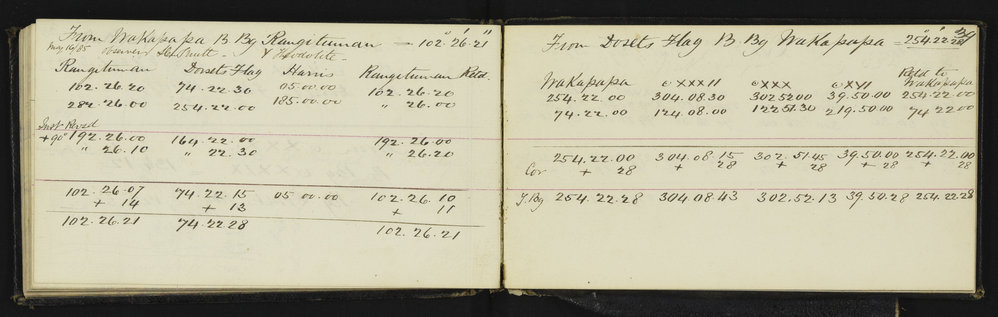 From Wakapapa B Bg Rangituman = 102°.26'.21"
May 16/85 Observer & Theodolite
Rangituman Dorsets Flag Harris Rangituman Retd.
102.26.20 74.22.30 05.00.00 102.26.20
282.26.00 254.22.00 185.00.00 " 26.00
Inst Revsd
+90° 192.26.00 164.22.00 192.26.00
" 26.10 " 22.30 " 26.20
102.26.07 74.22.15 05.00.00 102.26.10
+ 14 + 13 + 11
102.26.21 74.22.28 102.26.21
From Dorsets Flag B Bg Wakapapa = 254°.22'.28"
Wakapapa c XXXII c XXX c XVI Retd to Wakapapa
254.22.00 304.08.30 302.52.00 39.50.00 254.22.00
74.22.00 124.08.00 122.51.30 219.50.00 74 22 00
254.22.00 304.08.15 302.51.45 39.50.00 254.22.00
Cor + 28 + 28 + 28 + 28 + 28
T.Bg 254.22.28 304.08.43 302.52.13 39.50.28 254.22.28